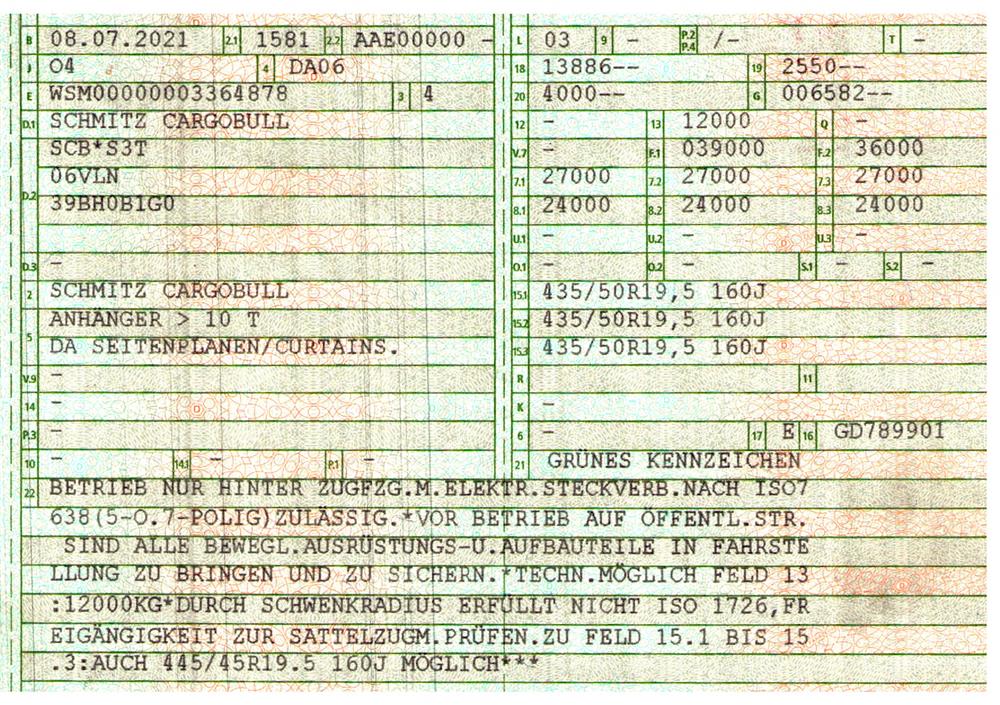 B 08.07.2021 2.1 1581 2.2 AAE00000 -
J 04 4 DA06
E WSM00000003364878 3 4
D.1 SCHMITZ CARGOBULL
SCB*S3T
D.2 06VLN
39BH0B1G0
D.3 -
2 SCHMITZ CARGOBULL
5 ANHÄNGER > 10 T
DA SEITENPLANEN/CURTAINS.
V.9 -
14 -
P.3 -
10 - 14.1 - P.1 -
L 03 9 - P.2 P.4 /- T -
18 13886-- 19 2550--
20 4000-- G 006582--
12 - 13 12000 Q -
V.7 - F.1 039000 F.2 36000
7.1 27000 7.2 27000 7.3 27000
8.1 24000 8.2 24000 8.3 24000
U.1 - U.2 - U.3 -
O.1 - O.2 - S.1 - S.2 -
15.1 435/50R19,5 160J
15.2 435/50R19,5 160J
15.3 435/50R19,5 160J
R 11
K -
6 - 17 E 16 GD789901
21 GRÜNES KENNZEICHEN
22 BETRIEB NUR HINTER ZUGFZG.M.ELEKTR.STECKVERB.NACH ISO7
638(5-O.7-POLIG)ZULÄSSIG.*VOR BETRIEB AUF ÖFFENTL.STR.
SIND ALLE BEWEGL.AUSRÜSTUNGS-U.AUFBAUTEILE IN FAHRSTE
LLUNG ZU BRINGEN UND ZU SICHERN.*TECHN.MÖGLICH FELD 13
:12000KG*DURCH SCHWENKRADIUS ERFÜLLT NICHT ISO 1726,FR
EIGÄNGIGKEIT ZUR SATTELZUGM.PRÜFEN.ZU FELD 15.1 BIS 15
.3:AUCH 445/45R19.5 160J MÖGLICH***